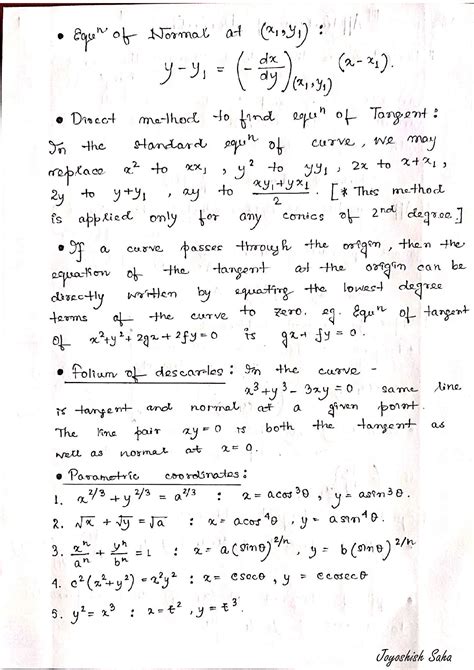 • Equⁿ of Normal at (x₁, y₁) :
y - y₁ = (- dx/dy)₍ₓ₁, ᵧ₁₎ (x - x₁).
• Direct method to find equⁿ of Tangent :
In the standard equⁿ of curve, we may
replace x² to xx₁, y² to yy₁, 2x to x+x₁,
2y to y+y₁, xy to (xy₁+yx₁)/2. [* This method
is applied only for any conics of 2nd degree.]
• If a curve passes through the origin, then the
equation of the tangent at the origin can be
directly written by equating the lowest degree
terms of the curve to zero. eg. Equⁿ of tangent
of x²+y²+2gx+2fy=0 is gx+fy=0.
• Folium of descartes : In the curve -
x³+y³-3xy=0 same line
is tangent and normal at a given point.
The line pair xy=0 is both the tangent as
well as normal at x=0.
• Parametric coordinates :
1. x^2/3 + y^2/3 = a^2/3 : x = acos³θ, y = asin³θ.
2. √x + √y = √a : x = acos⁴θ, y = asin⁴θ.
3. xⁿ/aⁿ + yⁿ/bⁿ = 1 : x = a(sinθ)^2/n, y = b(sinθ)^2/n.
4. c²(x²+y²) = x²y² : x = csecθ, y = ccosecθ
5. y² = x³ : x = t², y = t³.
Joyoshish Saha